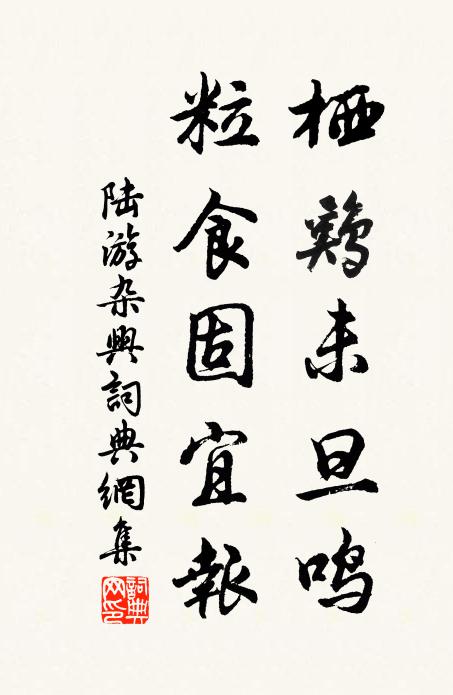 栖鷄未旦鸣
粒食固宜報
陆游杂興詞典網集
詞典网印